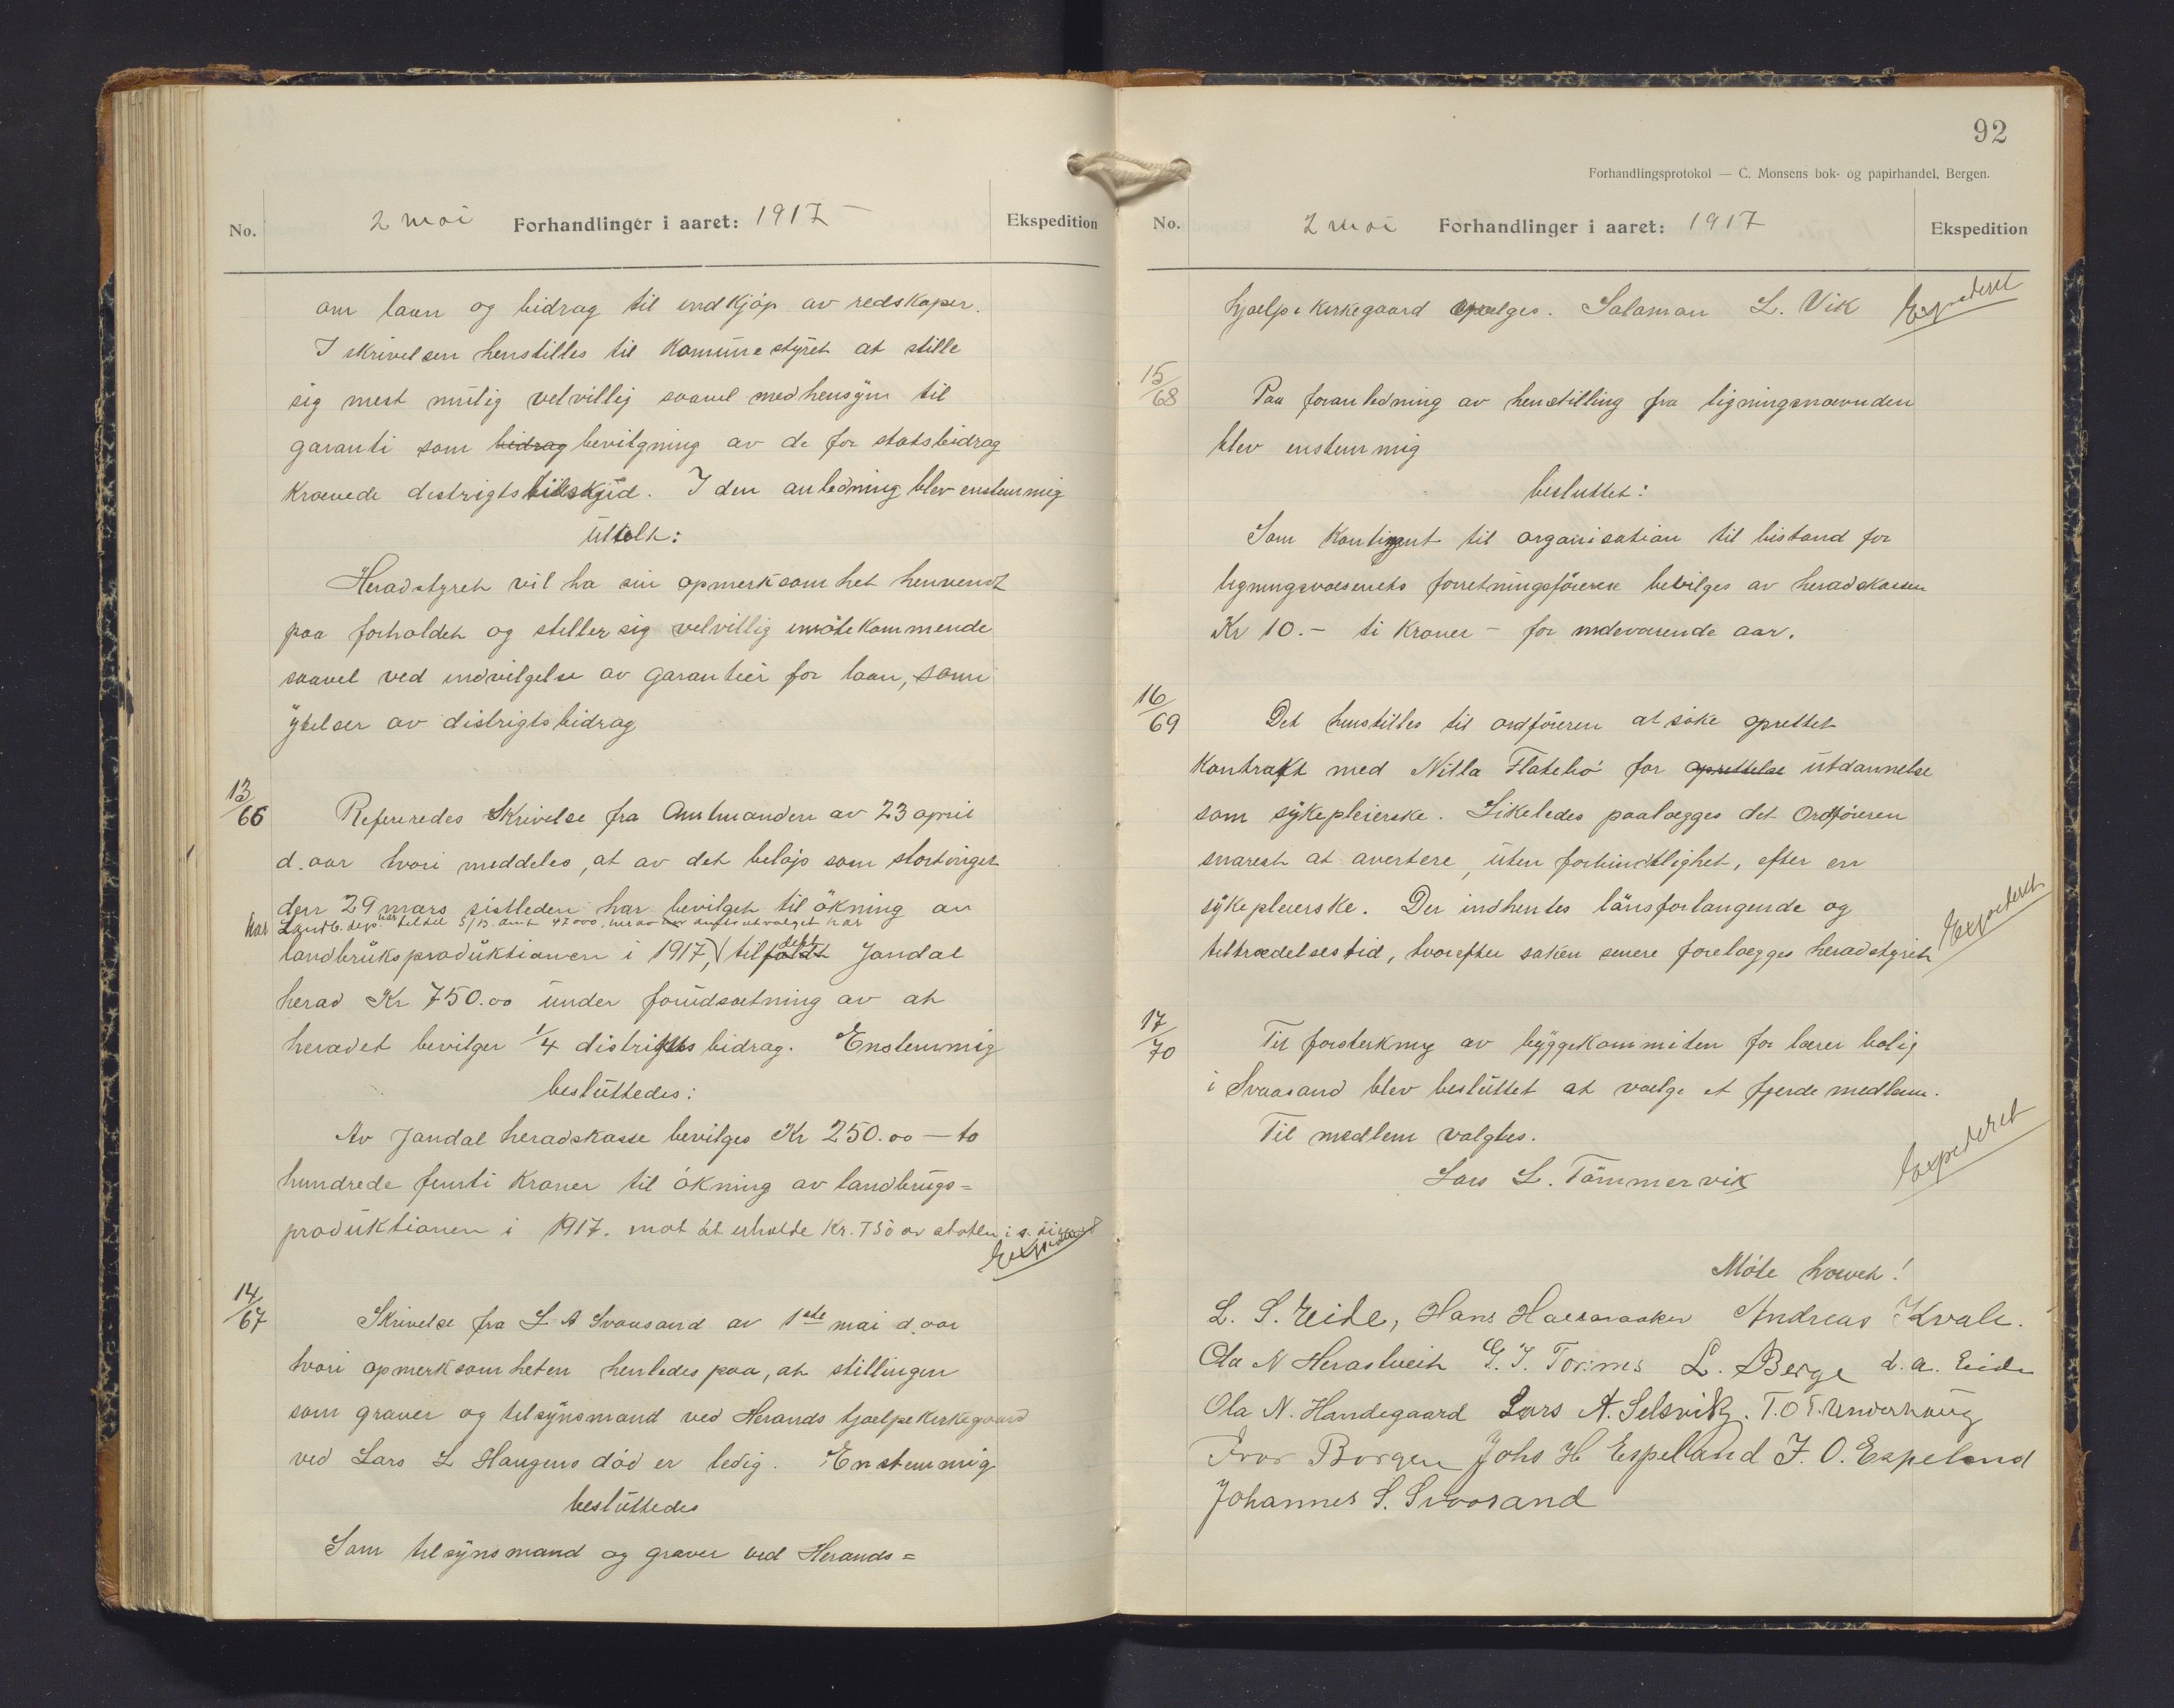 No.
2 mai Forhandlinger i aaret: 1917 –
Ekspedition
om laan og bidrag til indkjöp av redskaper.
I skrivelsen henstilles til Komunestyret at stille
sig mest mulig velvillig saavel med hensyn til
garanti som bidrag bevilgning av de for statsbidrag
krævede distrigtstilskud. I den anledning blev enstemmig
uttalt:
Heradstyret vil ha sin opmerksomhet henvendt
paa forholdet og stiller sig velvillig imötekommende
saavel ved indvilgelse av garantier for laan, som
ytelser av distrigtsbidrag
13/66
Refereredes Skrivelse fra Amtmanden av 23 april
d. aar hvori meddeles, at av det belöp som stortinget
den 29 mars sistleden har bevilget til ökning av
har Landb. dep. har tildel S/B. amt 47000, herav har amtsutvalget har
landbruksproduktionen i 1917, tildelt Jondal
herad Kr 750.00 under forudsætning av at
heradet bevilger 1/4 distrikts bidrag. Enstemmig
besluttedes:
Av Jondal heradskasse bevilges Kr 250.00 — to
hundrede femti Kroner til ökning av landbrugs=
produktionen i 1917. mot at erholde Kr. 750 av staten i s.
Expederet
14/67
Skrivelse fra L A Svaasand av 1ste mai d. aar
hvori opmerksomheten henledes paa, at stillingen
som graver og tilsynsmand ved Herands hjælpekirkegaard
ved Lars L Haugens död er ledig. Enstemmig
besluttedes
Som tilsynsmand og graver ved Herands=
92
Forhandlingsprotokol — C. Monsens bok- og papirhandel, Bergen.
No.
2 mai Forhandlinger i aaret: 1917
Ekspedition
hjælpekirkegaard vælges. Salamon L. Vik
Expederet
15/68
Paa foranledning av henstilling fra ligningsnævnden
blev enstemmig
besluttet:
Som Kontingent til organisation til bistand for
ligningsvæsenets forretningsförere bevilges av heradskassen
Kr 10.– ti Kroner – for indeværende aar.
16/69
Det henstilles til ordföreren at söke oprettet
Kontrakt med Nilla Flatebö for oprettelse utdannelse
som sykepleierske. Likeledes paalægges det Ordföreren
snarest at avertere, uten forbindtlighet, efter en
sykepleierske. Der indhentes lönsforlangende og
tiltrædelsestid, hvorefter saken senere forelægges heradstyret
Expederet
17/70
Til forsterkning av byggekommiten for lærer bolig
i Svaasand blev besluttet at vælge et fjerde medlem.
Til medlem valgtes.
Lars L. Tömmervik
Expederet
Möte hævet!
L. S. Eide, Hans Haesaraaker Andreas Kvale.
Ola N Herastveit G. J. Torsnes L. Berge d. a. Eide
Ola N. Handegaard Lars A. Selsvik. T. O T. Underhaug
Ivar Borgen Johs H Espelland J. O. Espeland
Johannes S. Svaasand